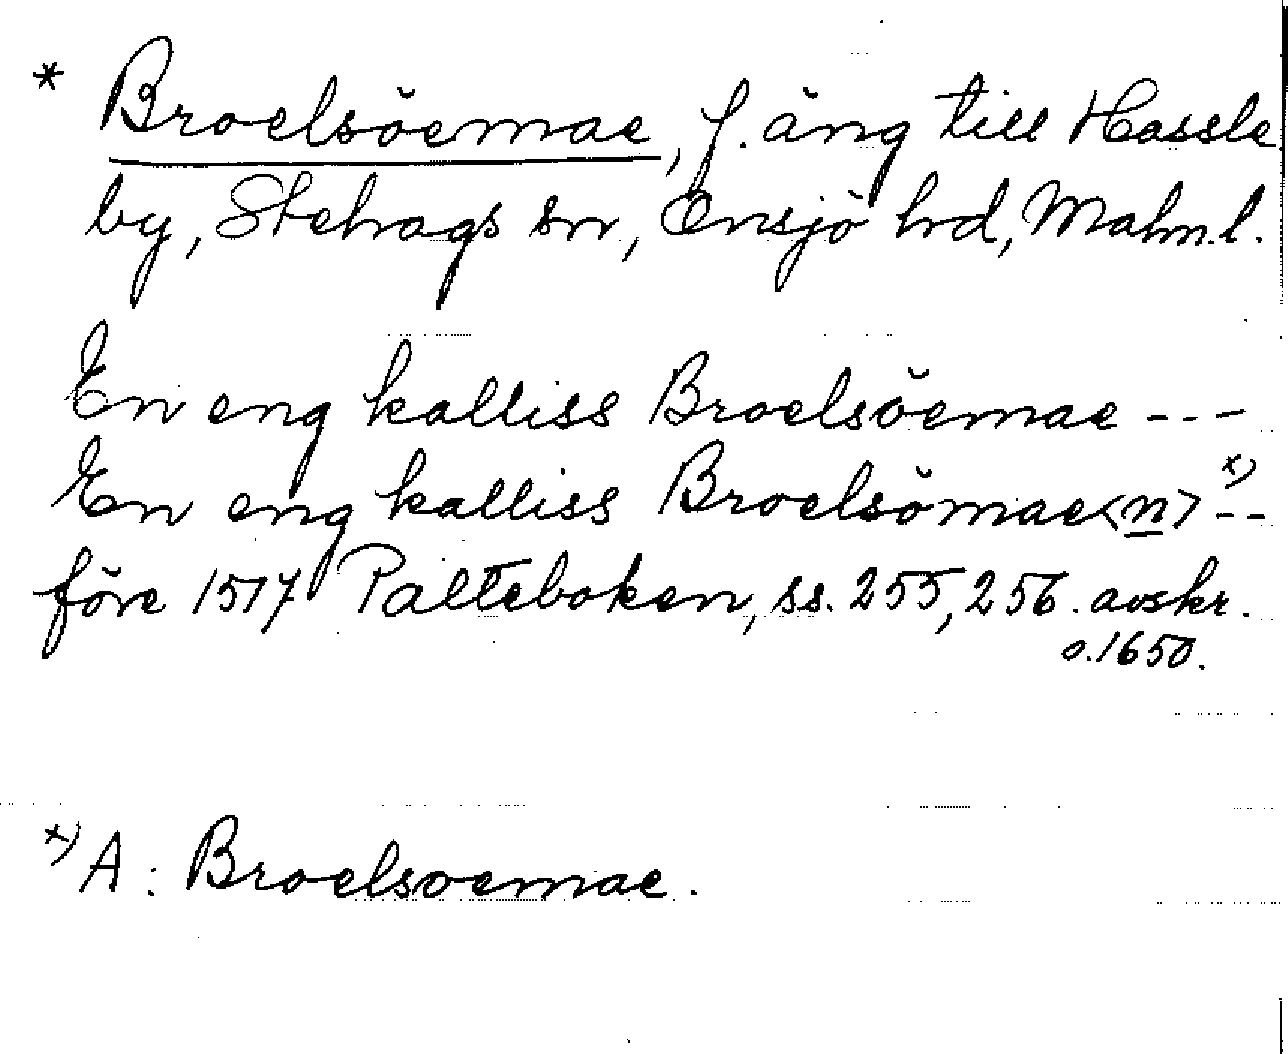 * Broelsöemae, f. äng till Hassle
by, Stehags sn, Onsjö hd, Malm.l.
En eng kalliss Broelsöemae ---
En eng kalliss Broelsömae<n> x) --
före 1517 Palteboken, ss. 255, 256. avskr.
o. 1650.
x) A: Broelsoemae.